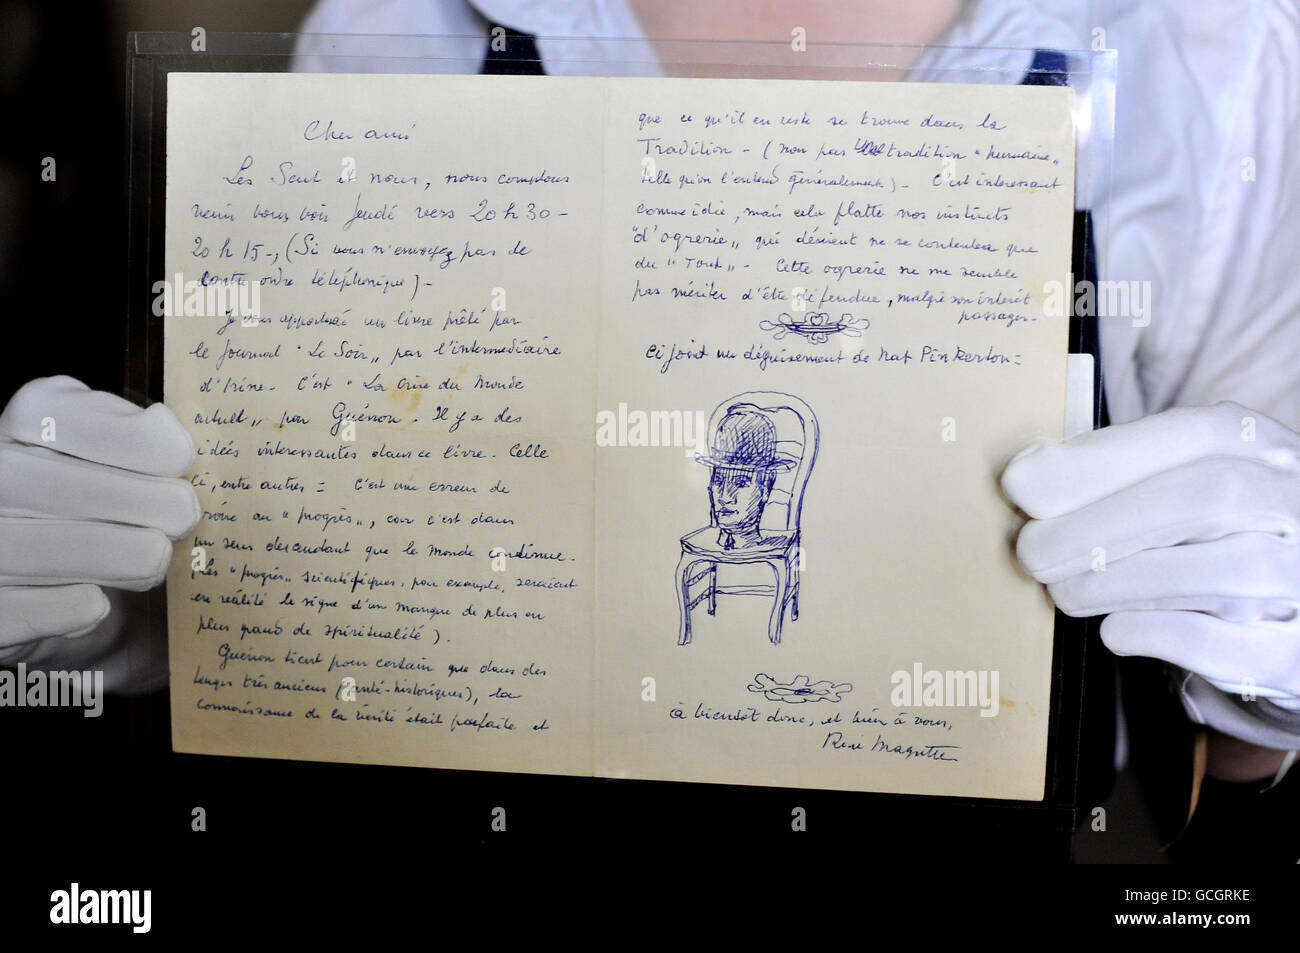 Cher ami
Les Scut et nous, nous comptons
venir vous voir Jeudi vers 20 h 30 -
20 h 15 -, (Si vous n'envoyez pas de
contre ordre téléphonique) -
Je vous apporterai un livre prêté par
le journal "Le Soir„ par l'intermédiaire
d'Irine - C'est "La Crise du Monde
actuel„ par Guénon - Il y a des
idées intéressantes dans ce livre - Celle
ci, entre autres = C'est une erreur de
croire au "progrès„, car c'est dans
un sens descendant que le monde continue -
(Les "progrès„ scientifiques, par exemple, seraient
en réalité le signe d'un manque de plus en
plus grand de spiritualité).
Guénon tient pour certain que dans des
temps très anciens (anté-historiques), la
connaissance de la vérité était parfaite et
que ce qu'il en reste se trouve dans la
Tradition - (non pas tradition "humaine„
telle qu'on l'entend généralement) - C'est intéressant
comme idée, mais cela flatte nos instincts
"d'ogrerie„ qui désirent ne se contenter que
du "Tout„ - Cette ogrerie ne me semble
pas mériter d'être défendue, malgré son intérêt
passager -
Ci joint un déguisement de Nat Pinkerton =
à bientôt donc, et bien à vous,
René Magritte
alamy
a
Image ID: GCGRKE
www.alamy.com